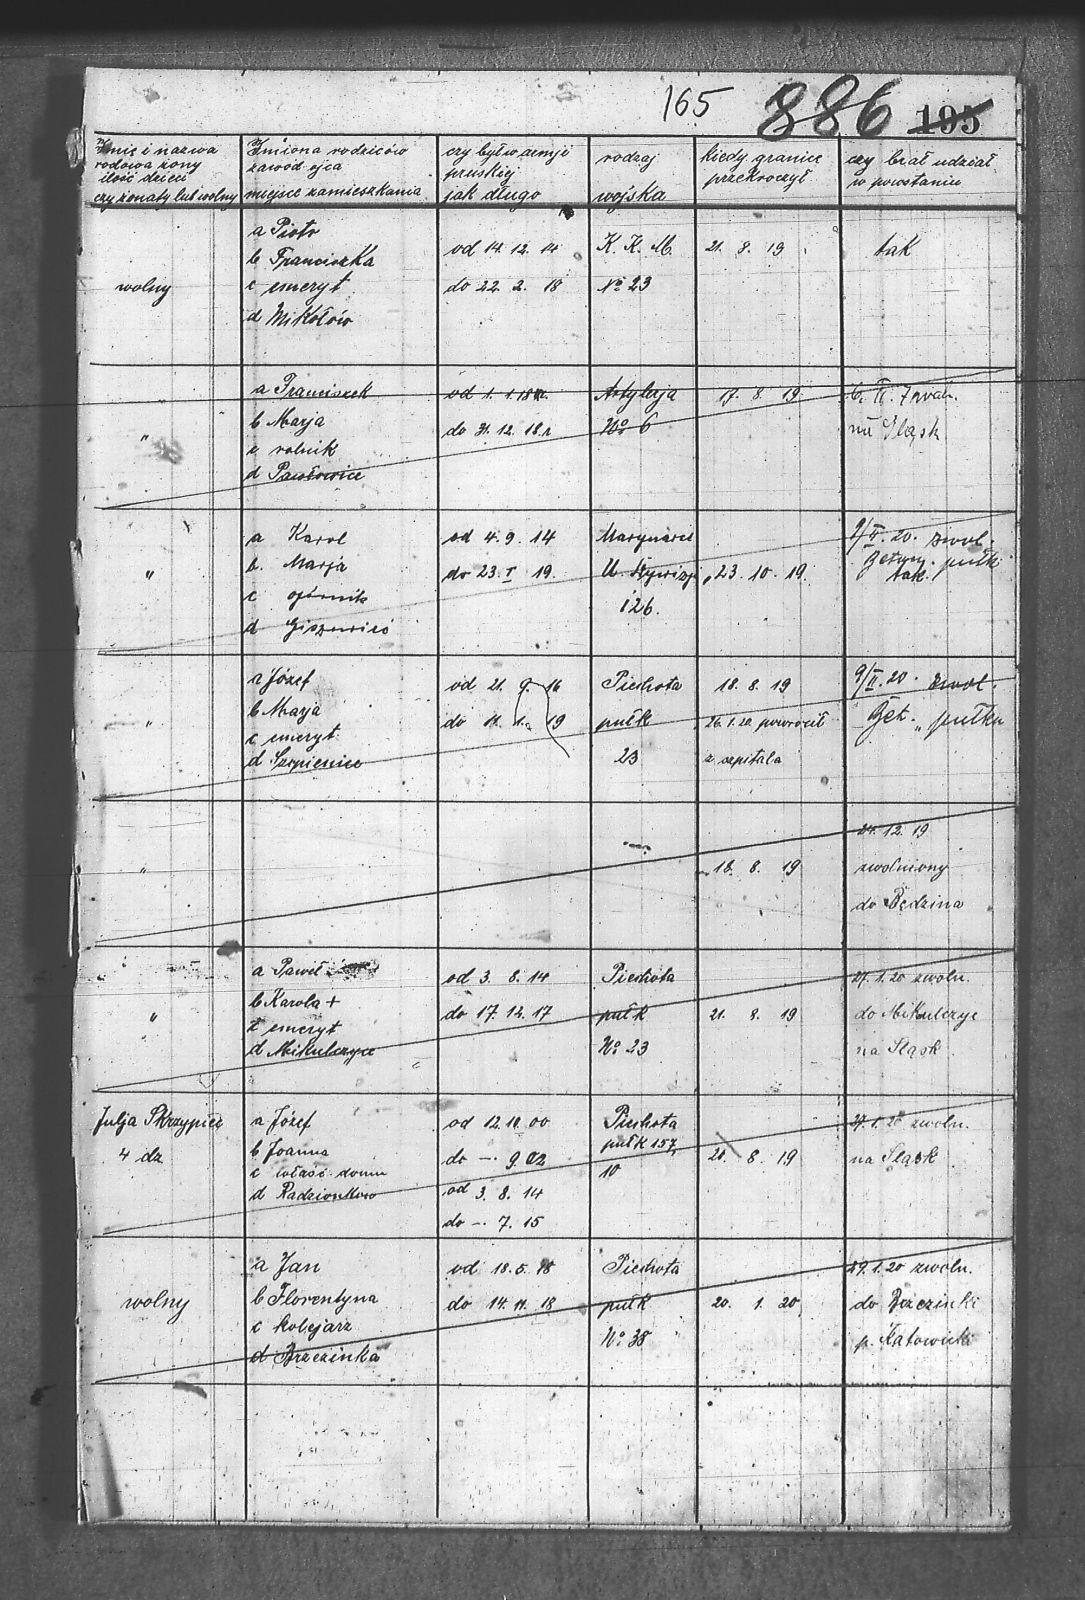 165 886 195
Imię i nazwa
rodowa żony
ilość dzieci
czy żonaty lub wolny
Imiona rodziców
zawód ojca
miejsce zamieszkania
czy był w armji
pruskiej
jak długo
rodzaj
wojska
kiedy granicę
przekroczył
czy brał udział
w powstaniu
wolny
a Piotr
b Franciszka
c emeryt
d Mikołów
od 14. 12. 14
do 22. 2. 18
K. K. M.
No 23
21. 8. 19
tak
"
a Franciszek
b Marja
c rolnik
d Pawłowice
od 1. 1. 18
do 31. 12. 18 r
Artylerja
No 6
17. 8. 19
na Śląsk
"
a Karol
b. Marja
c górnik
d Giszowiec
od 4. 9. 14
do 23. I 19.
126.
23. 10. 19
9/II. 20. zwol.
pułk
tak.
"
a Józef
b Marja
c emeryt
d Szopienice
od 21. 9. 16
do 11. 1. 19
Piechota
pułk
23
18. 8. 19
26. 1. 20. powrócił
z szpitala
9/II. 20. zwol.
Bet. " pułku
"
18. 8. 19
24. 12. 19
zwolniony
do Będzina
"
a Paweł
b Karola +
c emeryt
d Mikulczyce
od 3. 8. 14
do 17. 12. 17
Piechota
pułk
No 23
21. 8. 19
27. 1. 20 zwoln.
do Mikulczyc
na Śląsk
Julja Skrzypiec
4 dz
a Józef
b Joanna
c właść. domu
d Radzionków
od 12. 10. 00
do –. 9. 02
od 3. 8. 14
do –. 7. 15
Piechota
pułk 157,
10
20. 8. 19
27. 1. 20 zwoln.
na Śląsk
wolny
a Jan
b Florentyna
c kolejarz
d Brzezinka
od 18. 5. 18
do 14. 11. 18
Piechota
pułk
No 38
20. 1. 20
29. 1. 20 zwoln.
do Brzezinki
p. Katowicki